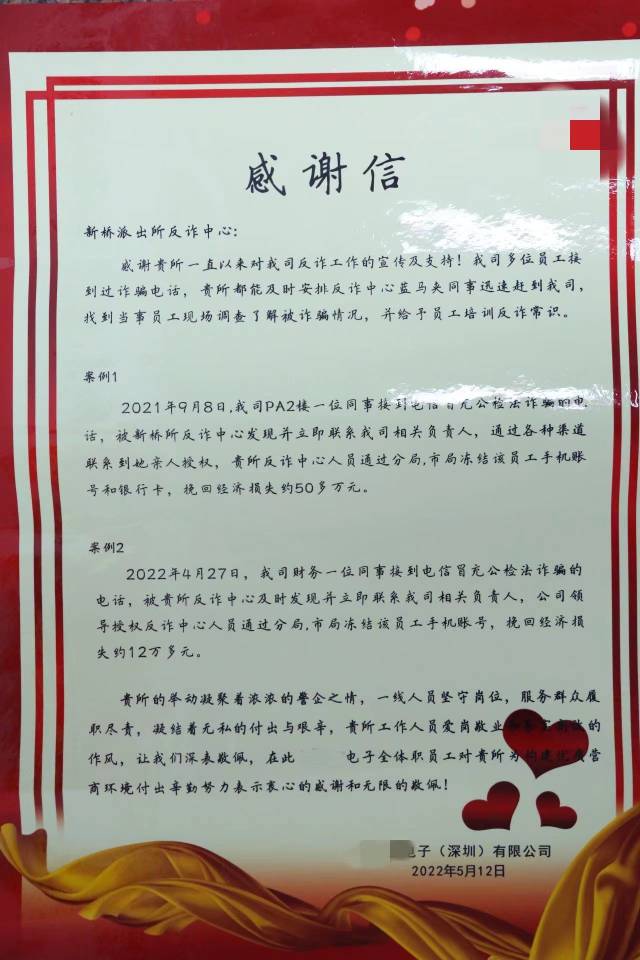 感谢信
新桥派出所反诈中心：
感谢贵所一直以来对我司反诈工作的宣传及支持！我司多位员工接
到过诈骗电话，贵所都能及时安排反诈中心蓝马夹同事迅速赶到我司，
找到当事员工现场调查了解被诈骗情况，并给予员工培训反诈常识。
案例1
2021年9月8日,我司PA2楼一位同事接到电信冒充公检法诈骗的电
话，被新桥所反诈中心发现并立即联系我司相关负责人，通过各种渠道
联系到她亲人授权，贵所反诈中心人员通过分局,市局冻结该员工手机账
号和银行卡，挽回经济损失约50多万元。
案例2
2022年4月27日，我司财务一位同事接到电信冒充公检法诈骗的
电话，被贵所反诈中心及时发现并立即联系我司相关负责人，公司领
导授权反诈中心人员通过分局,市局冻结该员工手机账号，挽回经济损
失约12万多元。
贵所的举动凝聚着浓浓的警企之情，一线人员坚守岗位，服务群众履
职尽责，凝结着无私的付出与艰辛，贵所工作人员爱岗敬业和务实高效的
作风，让我们深表敬佩，在此 电子全体职员工对贵所为构建优质营
商环境付出辛勤努力表示衷心的感谢和无限的敬佩！
电子（深圳）有限公司
2022年5月12日